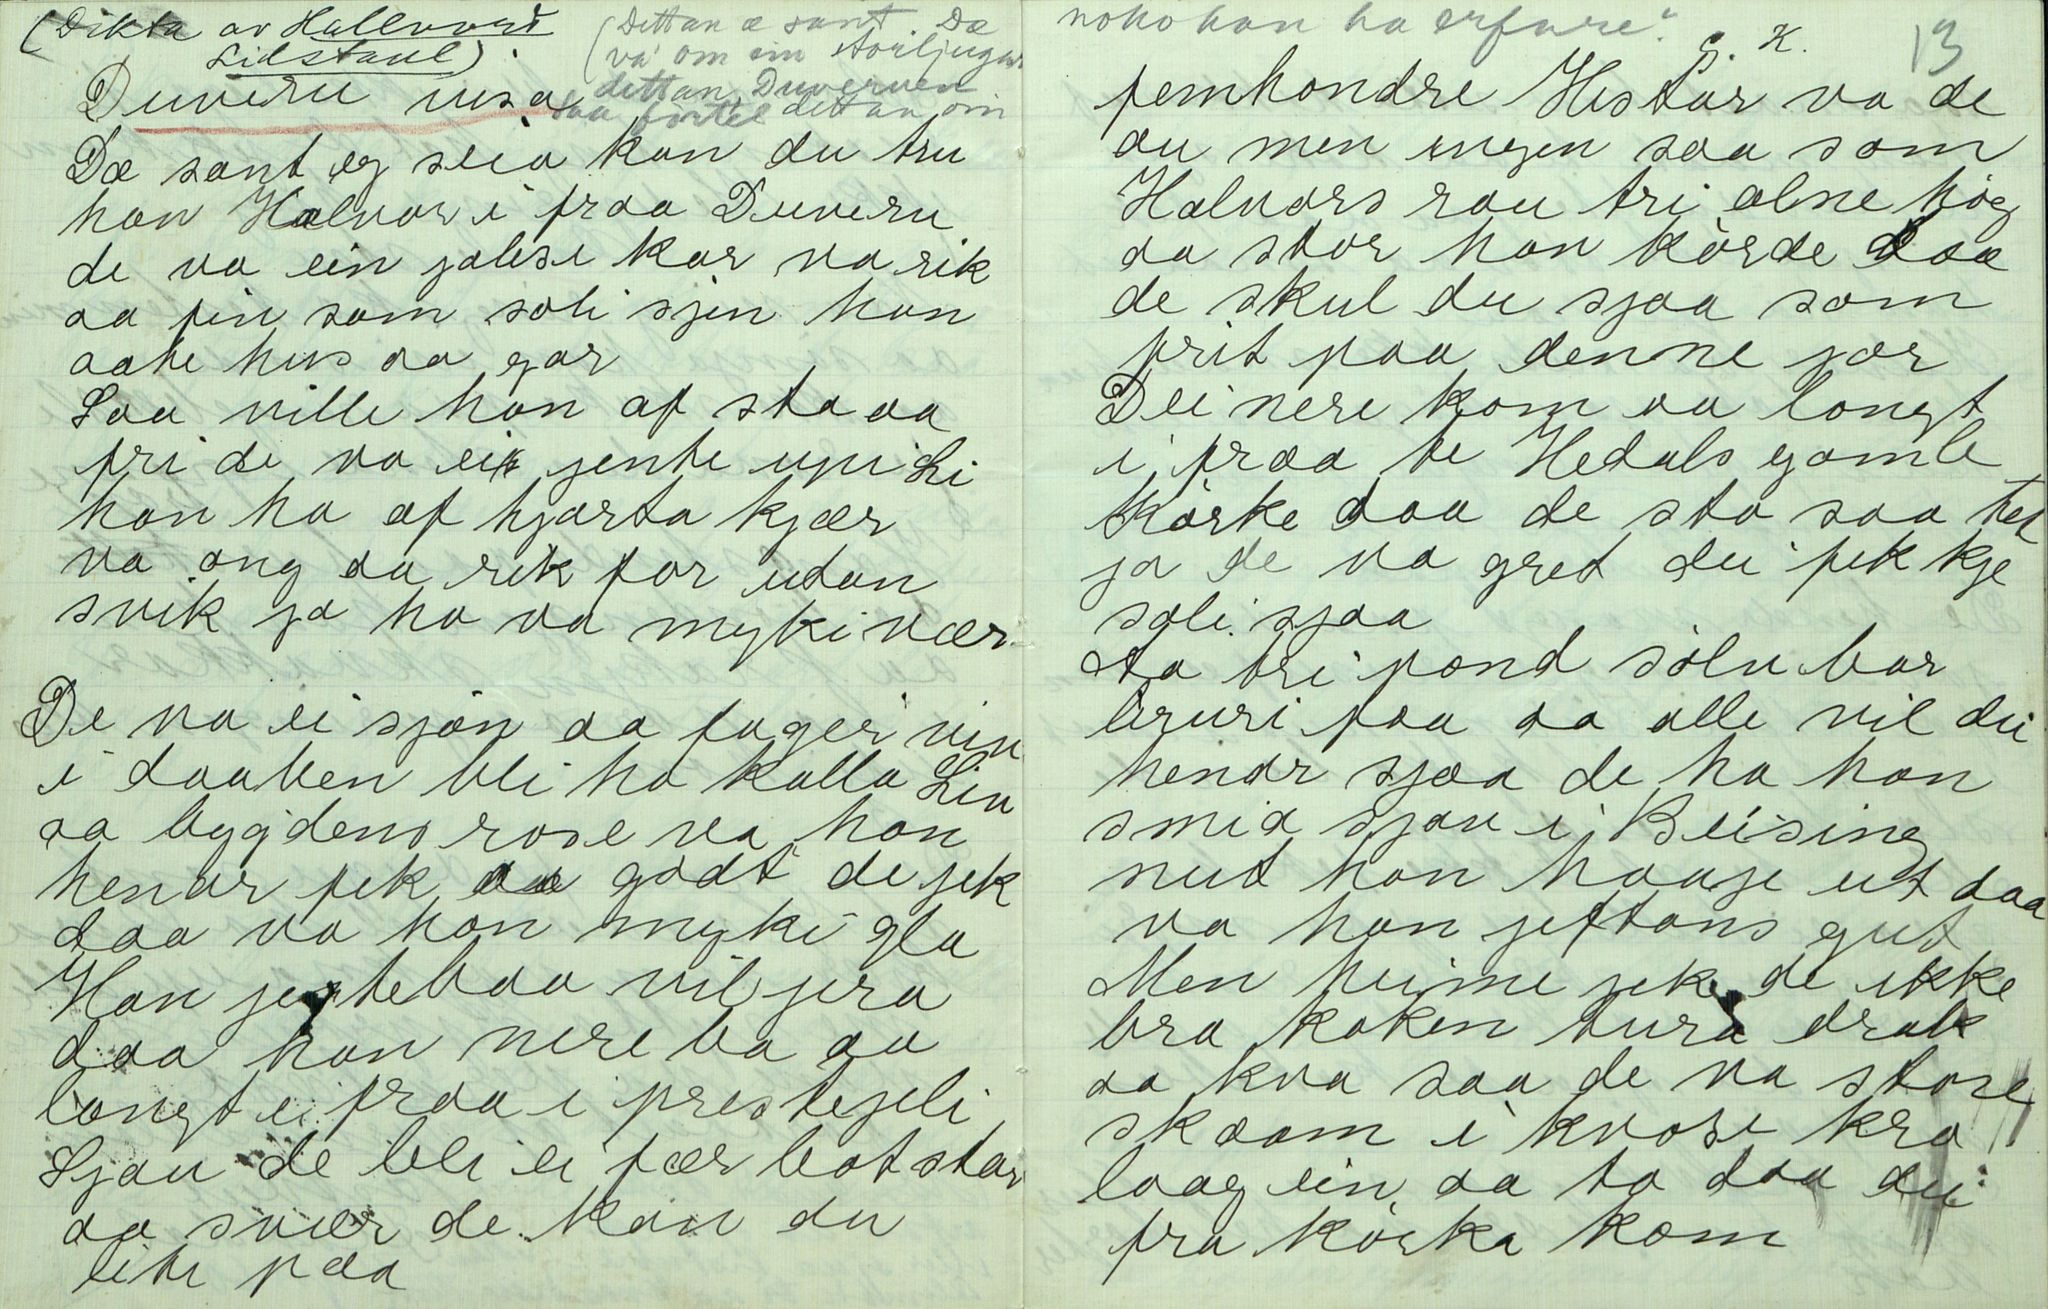 (Dikta av Hallvord
Lidstaul)
(Dettan æ sant. Dæ
va' om ein storljugar
dettan Duverven
saa fortel dettan om
noko han ha erfare.
S. K.
13
Duveru visa
Dæ sant eg seia kan du tru
han Halvor i fraa Duveru
de va ein jalise kar va rik
aa fin som soli sjin han
aate hus aa gar
Saa ville han af sta aa
fri de va ei jente upi Li
han ha af hjarta kjær
va ong aa rik for utan
svik ja ho va myki vær
De va ei sjøn aa fager vin
i daaben bli ho kalla Lin
aa bygdens rose va han
henar fek aa godt de jek
daa va han myki gla
Han jentebaa vil jera
daa han nere ba aa
langt i fraa i prestejeli
Sjau de bli ei fær bat star
aa svær de kan du
lite paa
femhondre Hestar va de
au men ingen saa som
Halvors rau tri alne høg
aa stor han kørde daa
de skul du sjaa som
frit paa denne jor
Dei nere kom aa langt
i fraa te Hedals gamle
Kørke daa de sto saa tet
ja de va gret dei fek kje
soli sjaa
ta tri pond sølv bar
bruri paa aa alle vil dei
henar sjaa de ha han
smia sjau i Beising
nut han haaje ut daa
va han jeftans gut
Men heime jek de ikke
bra koken tura drak
aa kva saa de va store
skaam i krose kra
laag ein aa ta daa dei
fra kørka kom